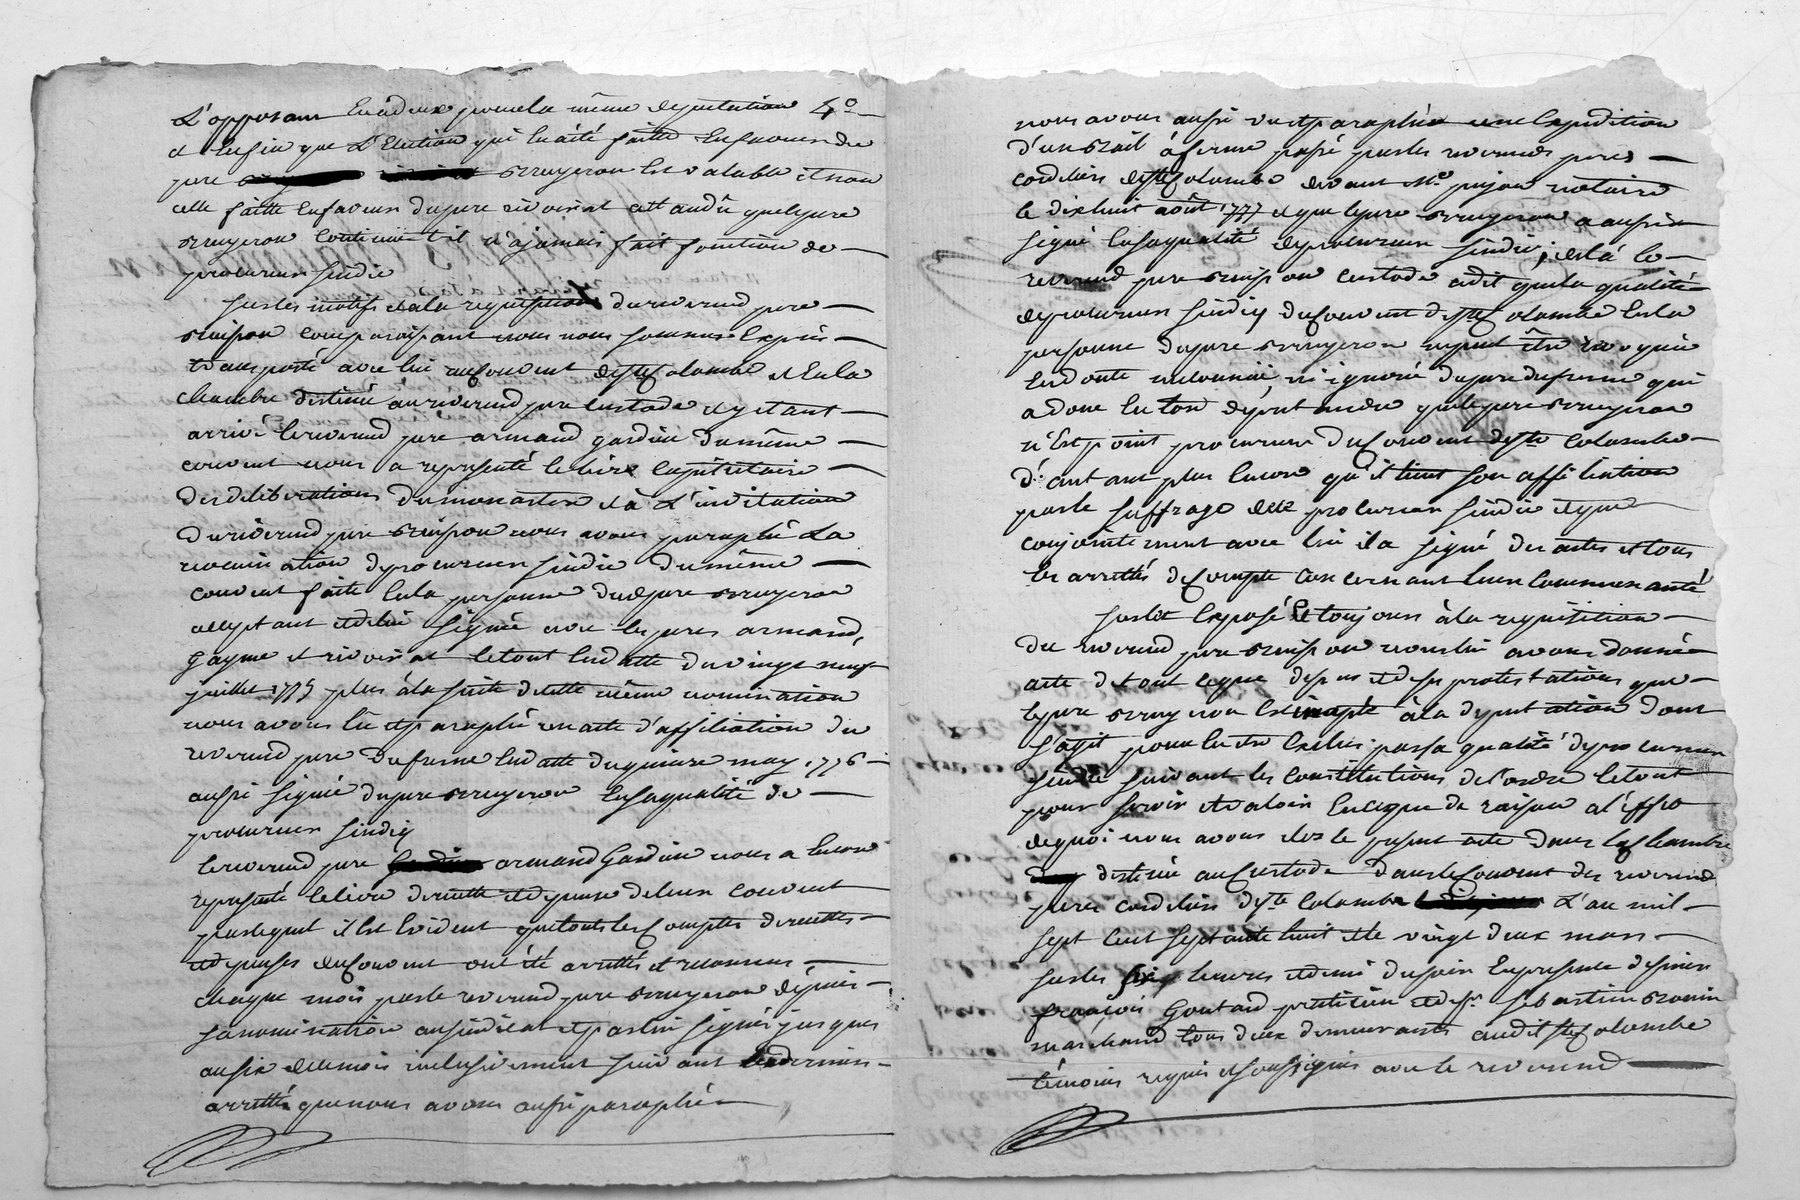 L'opposant Evidux pour la même deputation 4°
et enfin que L'Election qui lui a été faitte En faveur du
pere Bruyeron Est valable et non
celle faitte En faveur du pere rivoirat attandu que le pere
Bruyeron continue t'il n'a jamais fait fonction de
procureur sindic
Sur les motifs et a la requisition du reverend pere
comparoissant nous nous sommes Exprès
transporté avec lui au Couvent de Ste Colombe et En la
chambre destinée au reverend pere Custode et y etant
arrivé le reverend pere armand gardien du même
couvent nous a representé le livre Capitulaire
des deliberations du monastere et à L'invitation
du reverend pere nous avons paraphé La
nomination de procureur sindic du même
couvent faitte En la personne du pere Bruyeron
acceptant et de lui signée avec les peres armand,
Gayme et rivoirat le tout En datte du vingt neuf
juillet 1775 plus à la suite de cette même nomination
nous avons lû et paraphé un acte d'affiliation du
reverend pere Dufresne En datte du quinze may 1776
aussi signé du pere Bruyeron En sa qualité de
procureur sindiq
le reverend pere armand Gardien nous a Encore
representé le livre de recette et depense de leur couvent
par lequel il Est Evident que touts les Comptes de recettes
et depenses du Couvent ont été arrettés et reconnus
chaque mois par le reverend pere Bruyeron depuis
sa nomination au sindicat et par lui signés jusques
au six du mois inclusivement suivant le dernier
arretté que nous avons aussi paraphé
nous avons aussi vu et paraphé une Expedition
d'un Bail à ferme passé par les reverends peres
cordeliers de Ste Colombe devant Me pujon notaire
le dixhuit août 1777 et que le pere Bruyeron a aussi
signé En sa qualité de procureur sindic; et là le
reverend pere custode a dit que la qualité
de procureur sindiq du Couvent de Ste Colombe En la
personne du pere Bruyeron ne peut être revoquée
En doute ni ignoré du pere Dufresne qui
a donc Eu tort de pretendre que le pere Bruyeron
n'Est point procureur du Couvent de Ste Colombe
d'autant plus Encore qu'il tient son affiliation
par le suffrage de ce procureur sindic et que
conjointement avec lui il a signé des actes et tous
les arrettés de Compte Concernant leur Communauté
Sur cet Exposé Et toujours à la requisition
du reverend pere nous lui avons donné
acte de tout ce que dessus et de ses protestations que
le pere Bruyeron Est inapte à la deputation dont
s'agit pour En être Exclus par sa qualité de procureur
sindic suivant les Constitutions de l'ordre le tout
pour servir et valoir En ce que de raison a l'effet
de quoi nous avons clos le present acte dans la Chambre
destinée au Custode dans le Couvent des reverends
peres Cordeliers de Ste Colombe L'an mil
sept Cent septante huit et le vingt deux mars
sur les six heures et demi du soir En presence de sieur
françois Goutard praticien et de sr. sebastien Bronin
marchand tous deux demeurants audit Ste Colombe
témoins requis et soussignés avec le reverend